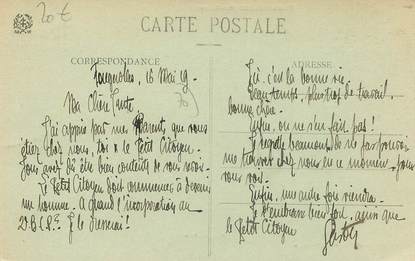 20€
CARTE POSTALE
CORRESPONDANCE
16 Mai 19.
Ma Chère Tante
J'ai appris par mes Parents que vous
étiez chez nous, toi & le Petit Citoyen.
Ils ont dû être bien contents de vous revoir.
Le Petit Citoyen doit commencer à devenir
un homme. À quand l'incorporation au
ADRESSE
Ici, c'est la bonne vie.
Beau temps, plus trop de travail,
bonne chère.
Enfin, on ne s'en fait pas!
Je regrette beaucoup de ne pas pouvoir
me trouver chez nous en ce moment, pour
vous voir.
Enfin, une autre fois viendra.
Je t'embrasse bien fort, ainsi que
le Petit Citoyen
Gaston